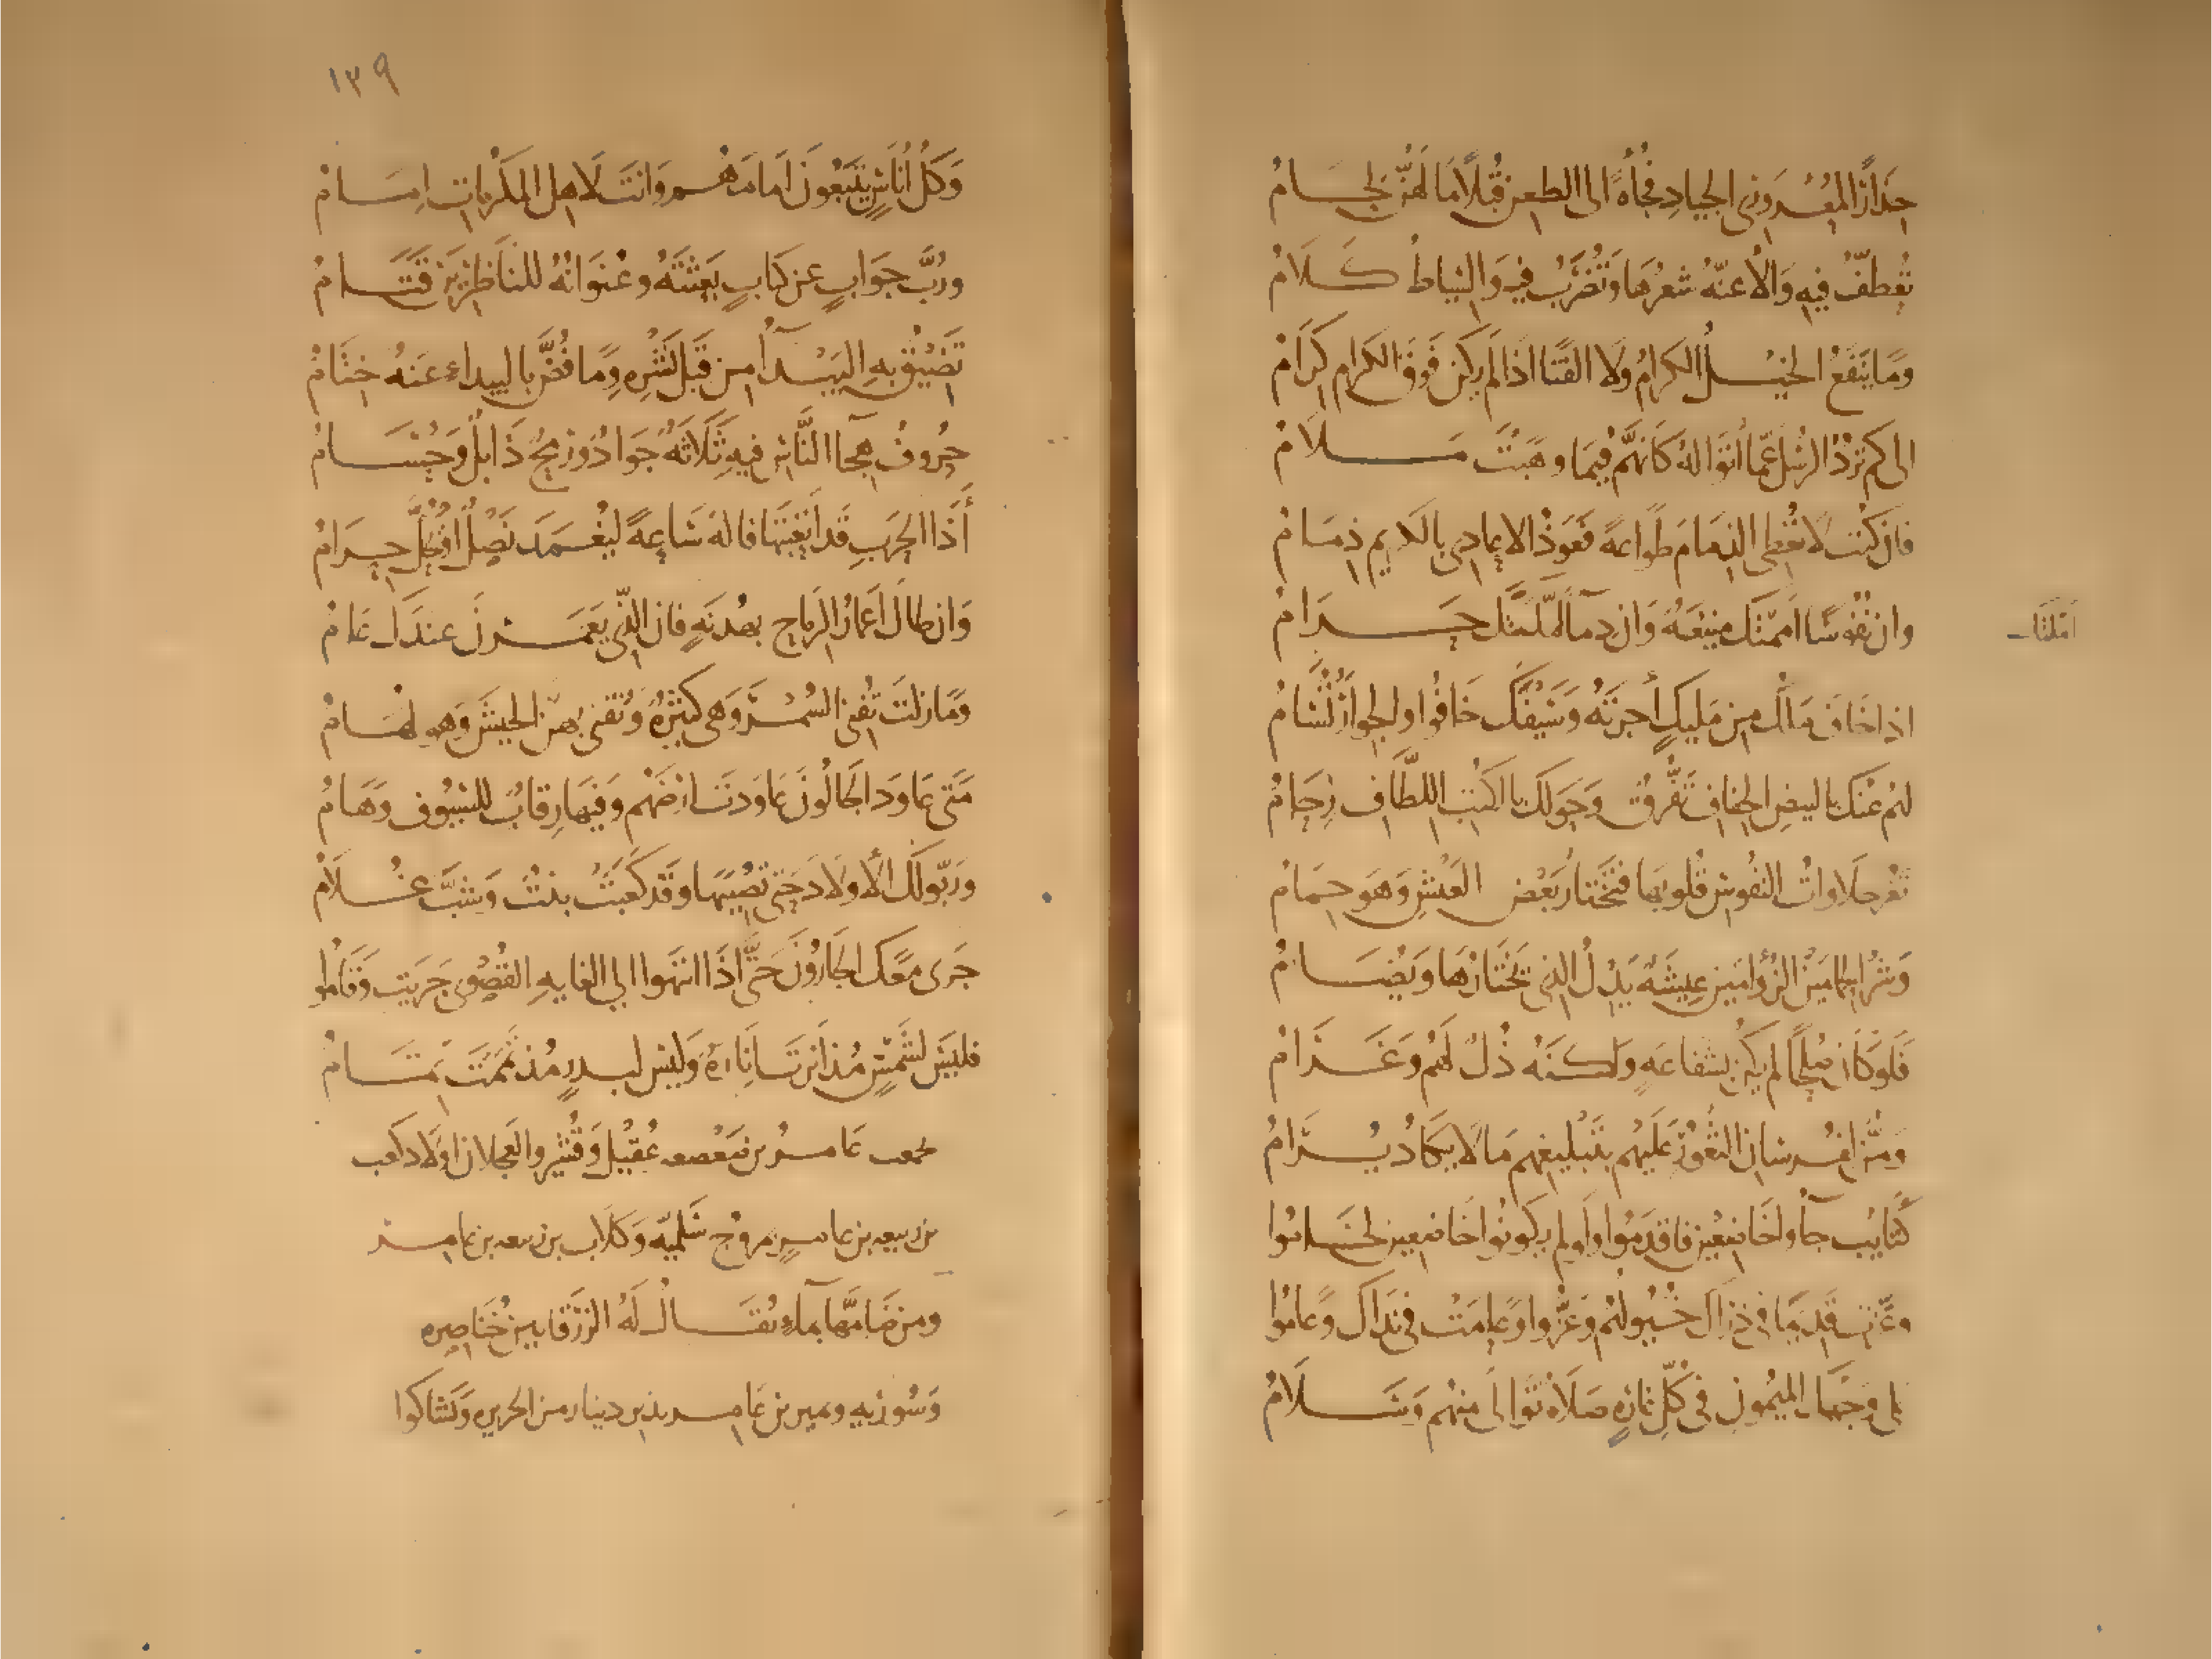 حِذَارًا لمُعْرَورِي الجيادِ فُجأةً الى الطعن قُبْلًا مَا لهُنَّ لِجَامُ
تُعطَّفُ فيهِ وَالاَعنّةُ شعرُهَا وَتُضْرَبُ فيهِ وَالسِّياطُ كَلَامُ
ومَا يَنفَعُ الخيْلُ الكرامُ ولَا القَنَا اذا لَم يكن فَوقَ الكرام كِرَامُ
الى كم تَردُّ الرسُلَ عَمّا اتَوا لهُ كَانهُمُ فيمَا وهَبْتَ مَلامُ
فان كنتَ لَا تُعْطى الذمَامَ طَواعةً فعَوذُ الاعادِى بالكريم ذِمَامُ
وان نفُوسًا امّمتْكَ منيعَةٌ وَان دِمآءً امّلتْكَ حَرَامُ
امّلتك
اذا خَافَ مَلْكٌ مِن مَليكٍ أجَرتَهُ وَسَيْفَكَ خَافُوا والجوَارَ تُسَامُ
لهُم عَنكَ بالبيضِ الخِفافِ تَفَرُّقٌ وَحَولَكَ بالكُتبِ اللطَافِ زِحَامُ
تَغُر حلَاواتُ النفُوسِ قُلوبَها فتَخْتارُ بَعْضَ العَيْشِ وَهوَ حِمَامُ
وَشَرُّ الحِمَامَيْنِ الزُؤامَينِ عيشَةٌ يَذِلُّ الذى يَختَارُهَا وَيُضَامُ
فَلَو كَانَ صُلحًا لم يَكُن بشفاعَةٍ وَلكنَّهُ ذُلٌّ لهُم وغَرَامُ
وَمَنٌّ لفُرسَانِ الثغُورِ عَلَيهُم بتَبْليغهِم مَا لَا يكَادُ يُرَامُ
كَتايبُ جآءُوا خَاضعينَ فاقدَمُوا وَلَو لم يَكونُوا خَاضعين لخَامُوا
وعَزّت قديمًا في ذَراكَ خُيُولهُم وَعَزُّوا وعَامَتْ فى نَداكَ وعَامُوا
على وجهكَ الميْمونِ فى كُلِّ غارةٍ صَلَاةٌ تَوَالَى منهُم وَسَلَامُ
١٣٩
وَكلُّ أُنَاسٍ يَتبَعُونَ اِمَامَهُم وَانتَ لاهل المكرُمَاتِ اِمَامُ
ورُبَّ جوَابٍ عن كتَابٍ بَعَثتَهُ وعُنوَانُهُ للنَاظِرينَ قَتَامُ
تَضيْقُ بهِ البَيْدآءُ من قَبل نَشْرِه وَمَا فُضَّ بالبيداء عَنهُ خِتَامُ
حُروفُ هِجآءِ النَّاسِ فيهِ ثَلَاثةٌ جوَادٌ وَرُمحٌ ذَابِلٌ وَحُسَامُ
أَذَا الحَربِ قَد اَتعَبْتَها فالهُ سَاعةً ليُغْمَدَ نَصْلٌ اوْ يُحَلَّ حِزَامُ
وَان طالَ اَعمَارُ الرمَاحِ بهُدنَةٍ فان الذّى يَعمَرنَ عندَكَ عَامُ
ومَا زلتَ تُفنى السُمْرَ وَهى كثيْرةٌ وَتُفنى بهنَّ الجيشَ وَهو لهَامُ
مَتَى عَاودَ الجَالُونَ عَاودتَ ارْضَهُم وَفيها رِقابٌ للسّيُوفِ وَهَامُ
ورَبّوا لكَ الأولَادَ حَتى تُصيْبَهَا وقد كَعَبَتْ بنتٌ وَشَبَّ غُلَامُ
جَرَى معَكَ الجَارُونَ حَتَّى اذَا انتهَوا الى الغَايةِ القُصْوَى جَرَيتَ وَقَامُوا
فليسَ لشَمْسٍ مُذ اَنَرتَ اِنَارةٌ وَليْسَ لبدرٍ مُذ تَمَمْتَ تمَامُ
تجمعت عَامرُ بن صَعْصعه عُقَيْل وَقُشَير والعَجلان اولَاد كعب
بن ربيعه بن عامر بمروج سَلَميّه وَكِلَاب بن ربيعه بن عامر
ومن ضَامّها بمآءٍ يُقَالُ لَهُ الزَرْقا بين خُنَاصِره
وَسُوريه ونمير بن عَامر بدير دينار من الجزيره وَتشاكوا